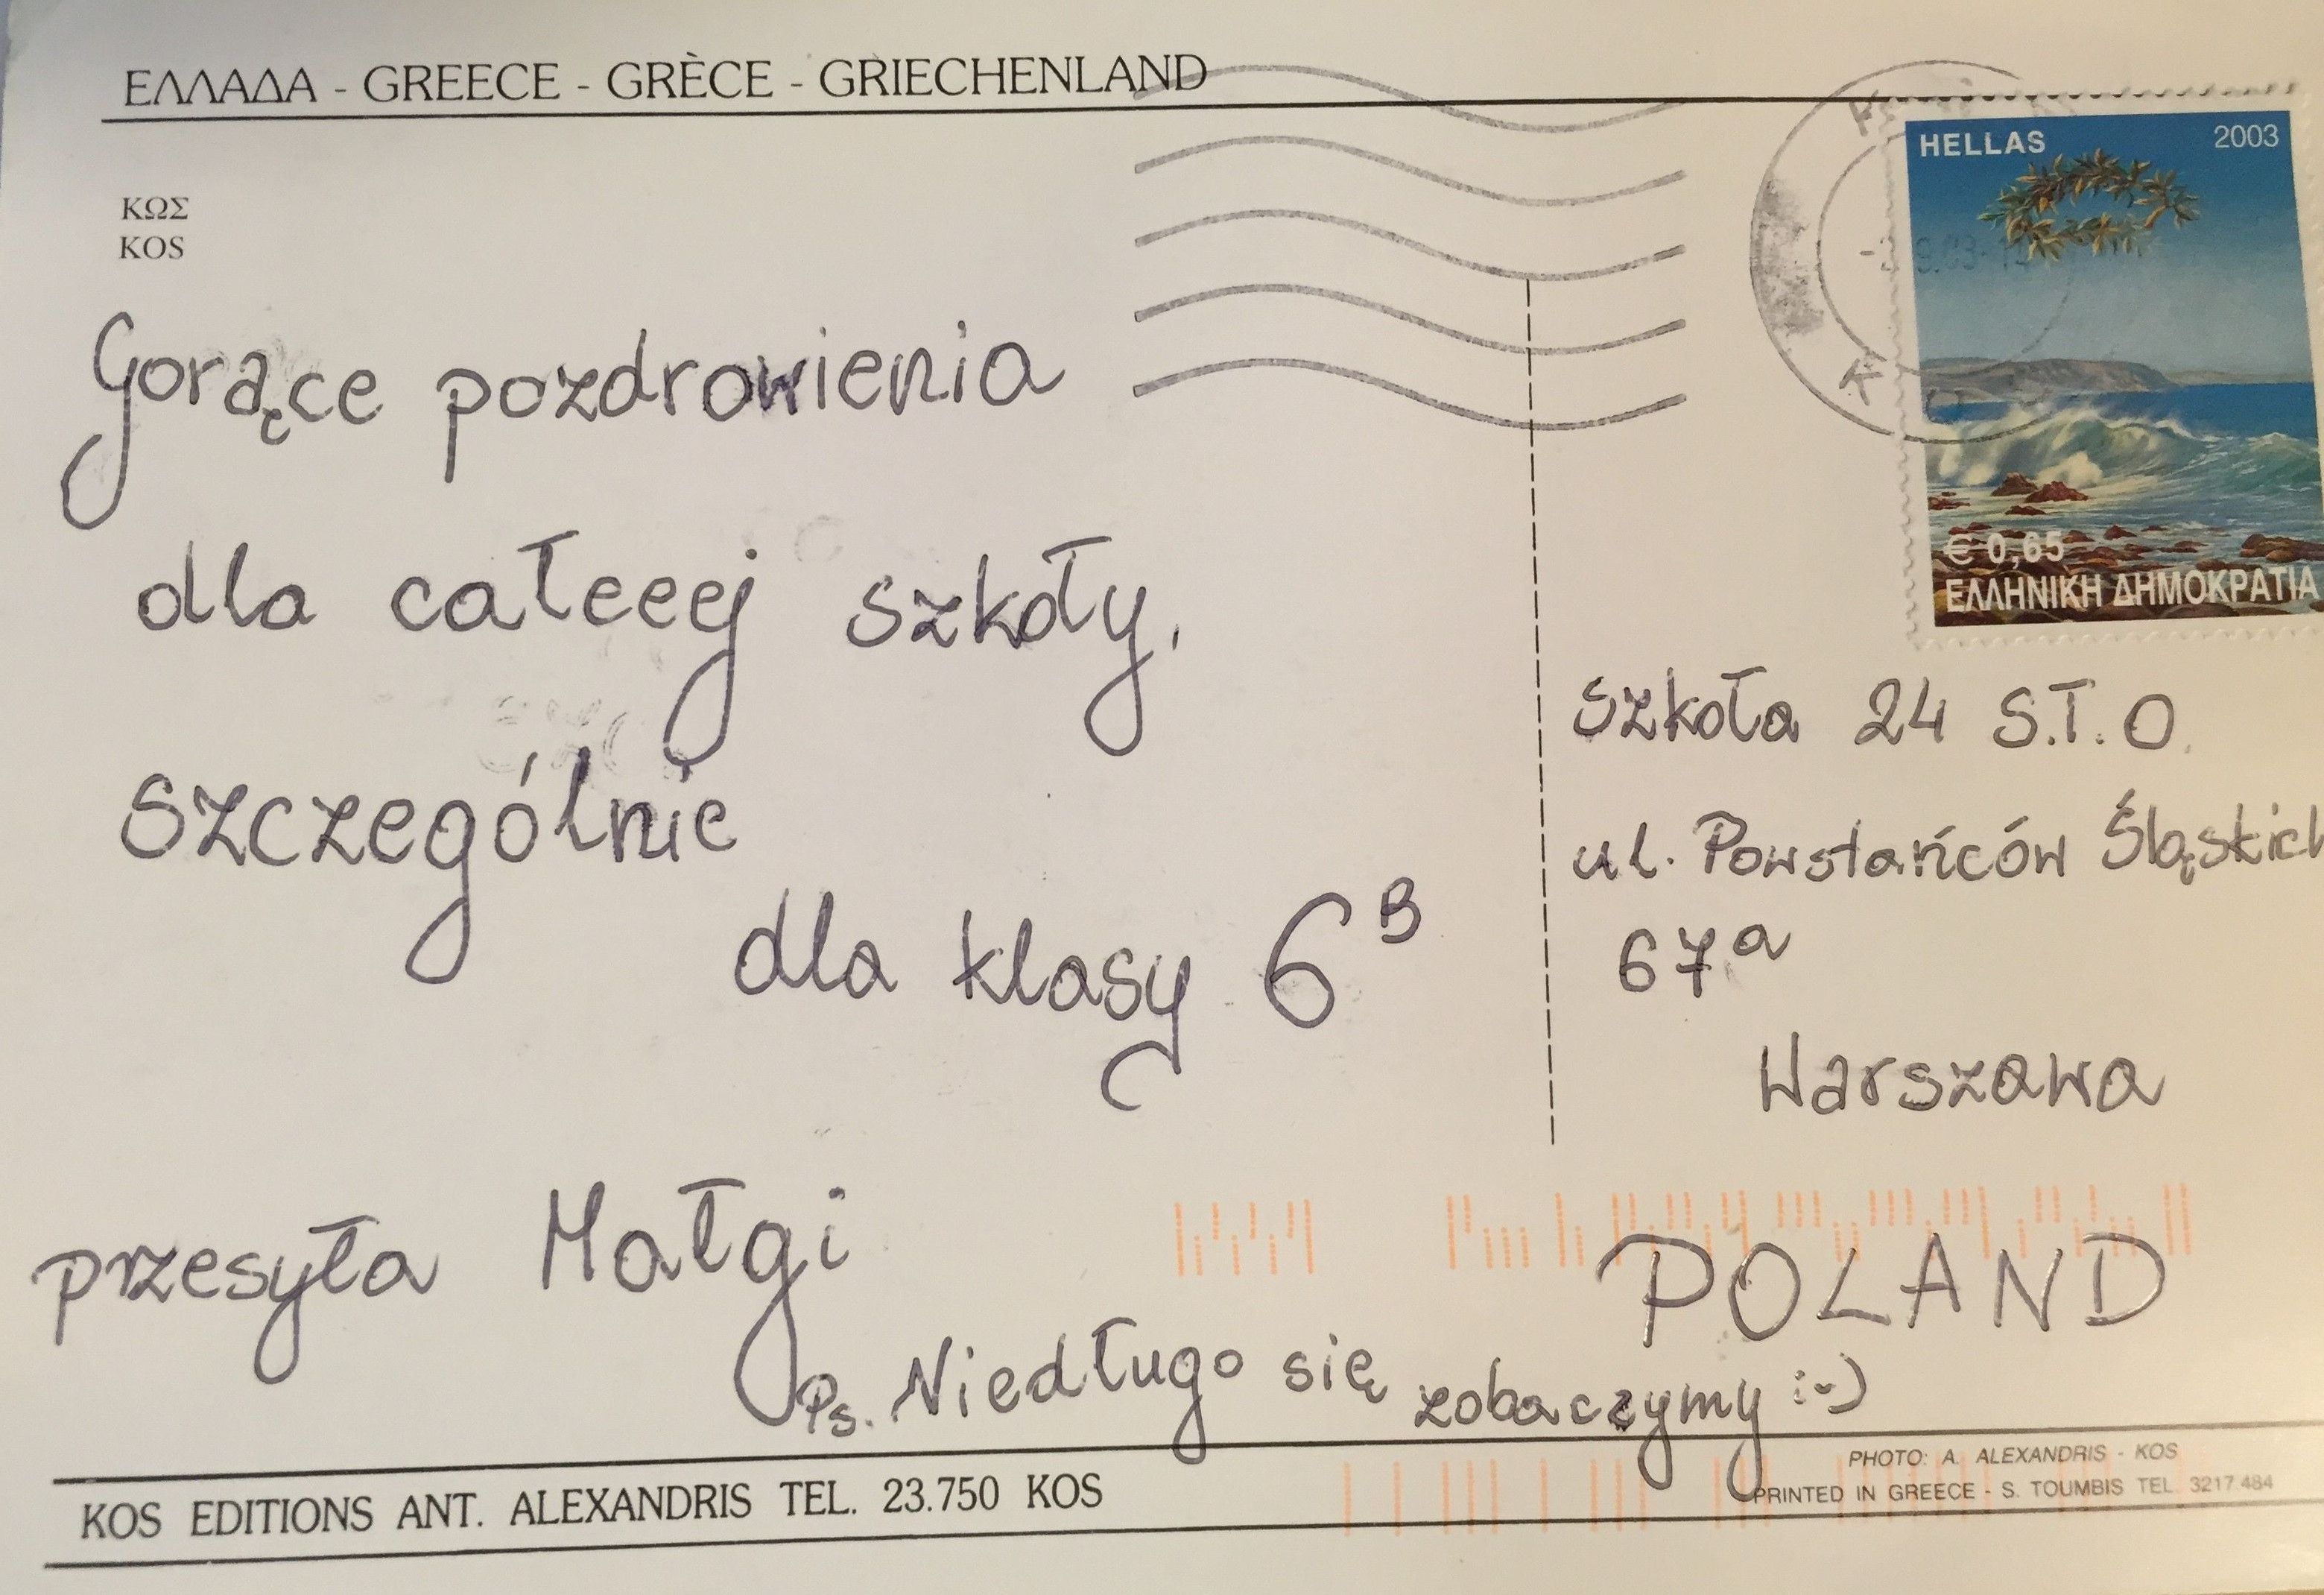 ΕΛΛΑΔΑ - GREECE - GRÈCE - GRIECHENLAND
ΚΩΣ
KOS
Gorące pozdrowienia
dla całeeej szkoły,
szczególnie
dla klasy 6B
przesyła Małgi
Ps. Niedługo się zobaczymy :-)
HELLAS 2003
€ 0,65
ΕΛΛΗΝΙΚΗ ΔΗΜΟΚΡΑΤΙΑ
Szkoła 24 S.T.O.
ul. Powstańców Śląskich
67a
Warszawa
POLAND
KOS EDITIONS ANT. ALEXANDRIS TEL. 23.750 KOS
PHOTO: A. ALEXANDRIS - KOS
PRINTED IN GREECE - S. TOUMBIS TEL. 3217.484